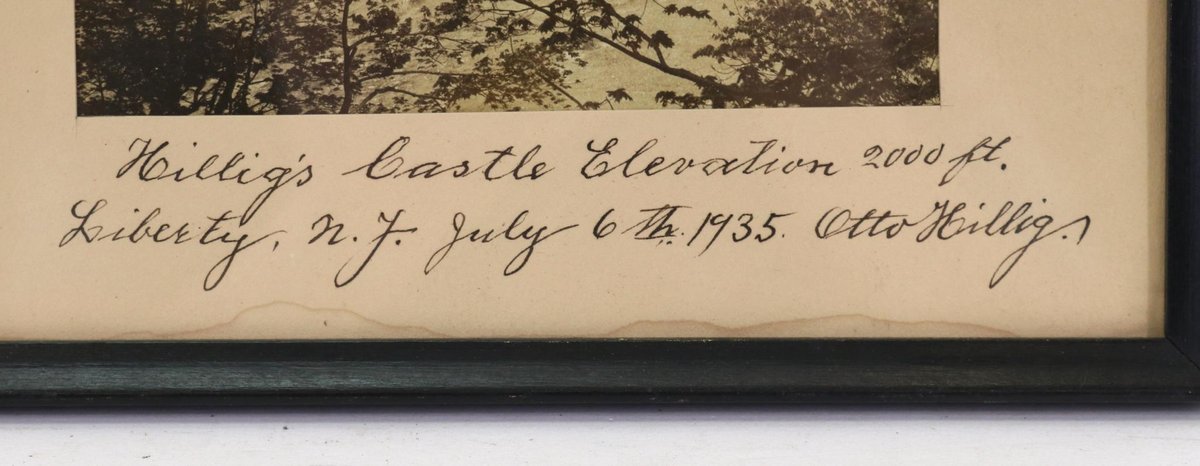 Hillig's Castle Elevation 2000 ft.
Liberty, N.Y. July 6th. 1935. Otto Hillig.